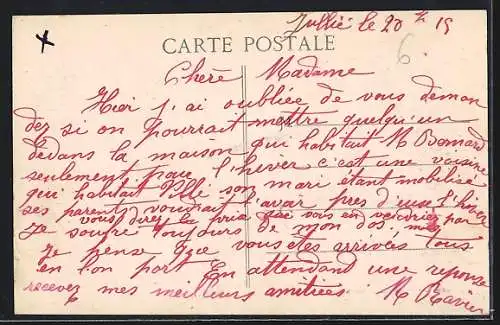 Jullié le 20 1915
6
CARTE POSTALE
Chère Madame
Hier j'ai oubliée de vous deman
dez si on pourrait mettre quelqu'un
dedans la maison qui habitait M Bonnard
seulement pour l'hiver c'est une voisine
qui habitait Ville son mari étant mobilisé
ses parents voudrait l'avoir pres d'eux l'hiver
vous direz le prix que vous en
Je souffre toujours de mon dos, mes
Je pense que vous êtes arrivés tous
en bon port En attendand une reponse
recevez mes meilleurs amitiées M Ravier